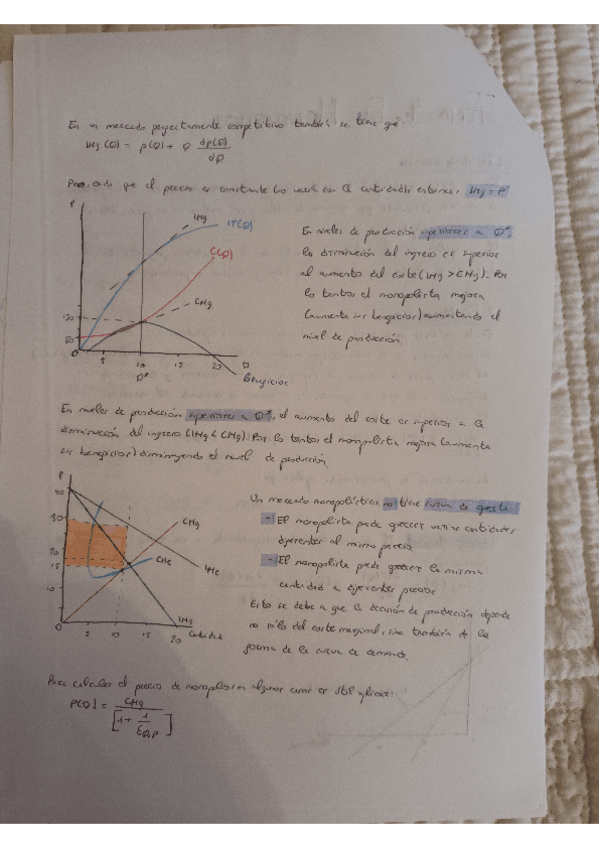 En un mercado perfectamente competitivo también se tiene que:
IMg (Q) = p(Q) + Q dp(Q)/dQ
que el precio es constante (no varía con la cantidad) entonces: IMg = P
P
IMg
IT(Q)
C(Q)
CMg
5
10
15
20
Q
Q*
Beneficios
En niveles de producción a Q*,
la disminución del ingreso es superior
al aumento del coste (IMg > CMg). Por
lo tanto el monopolista mejora
(aumenta sus beneficios) aumentando el
nivel de producción.
En niveles de producción superiores a Q*, el aumento del coste es superior a la
disminución del ingreso (IMg < CMg). Por lo tanto, el monopolista mejora (aumenta
sus beneficios) disminuyendo el nivel de producción.
P
40
30
20
15
10
0
5
10
15
20
CMg
CMe
IMe
IMg
Cantidad
Un mercado monopolístico no tiene curva de oferta.
- El monopolista puede ofrecer varias cantidades
diferentes al mismo precio
- El monopolista puede ofrecer la misma
cantidad a diferentes precios
Esto se debe a que la decisión de producción depende
no sólo del coste marginal, sino también de la
forma de la curva de demanda.
Para calcular el precio de monopolio en algunos casos es útil aplicar:
P(Q) = CMg / [1 + 1/εQ,P]